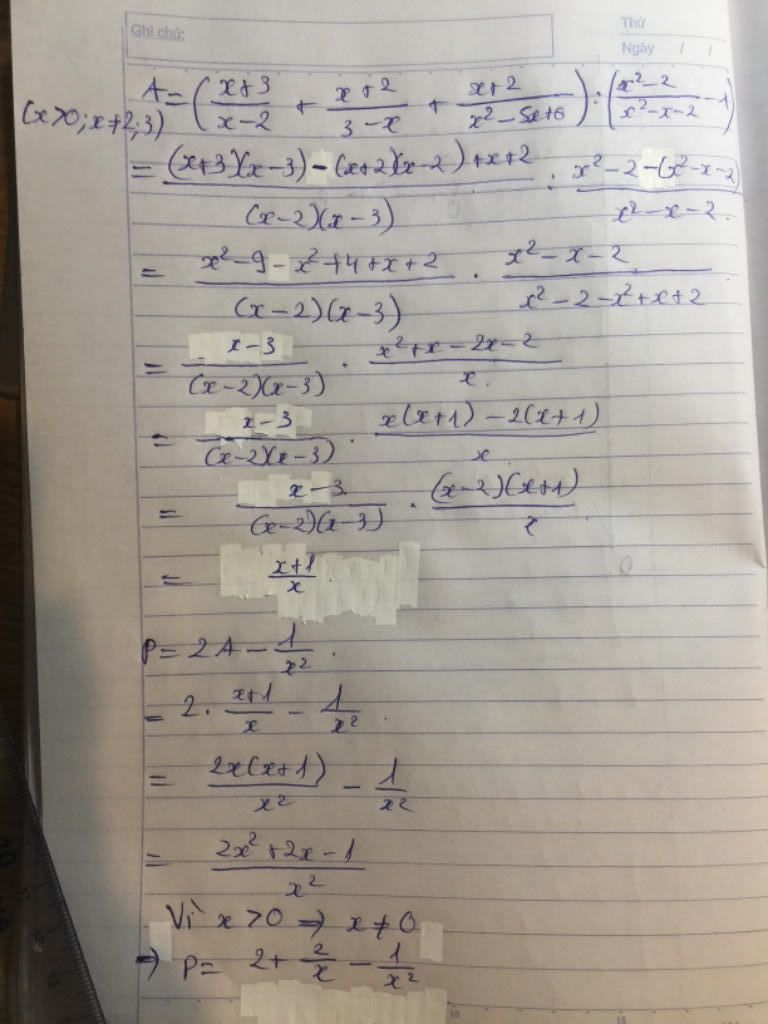 Ghi chú:
Thứ
Ngày / /
A = ( (x+3)/(x-2) + (x+2)/(3-x) + (x+2)/(x²-5x+6) ) : ( (x²-2)/(x²-x-2) - 1 )
(x>0; x≠2;3)
= ((x+3)(x-3) - (x+2)(x-2) + x+2)/((x-2)(x-3)) : (x²-2-(x²-x-2))/(x²-x-2)
= (x²-9-x²+4+x+2)/((x-2)(x-3)) . (x²-x-2)/(x²-2-x²+x+2)
= (x-3)/((x-2)(x-3)) . (x²+x-2x-2)/x
= (x-3)/((x-2)(x-3)) . (x(x+1)-2(x+1))/x
= (x-3)/((x-2)(x-3)) . ((x-2)(x+1))/x
= (x+1)/x
P = 2A - 1/x².
= 2. (x+1)/x - 1/x²
= 2x(x+1)/x² - 1/x²
= (2x²+2x-1)/x²
Vì x>0 ⇒ x≠0
⇒ P = 2 + 2/x - 1/x²